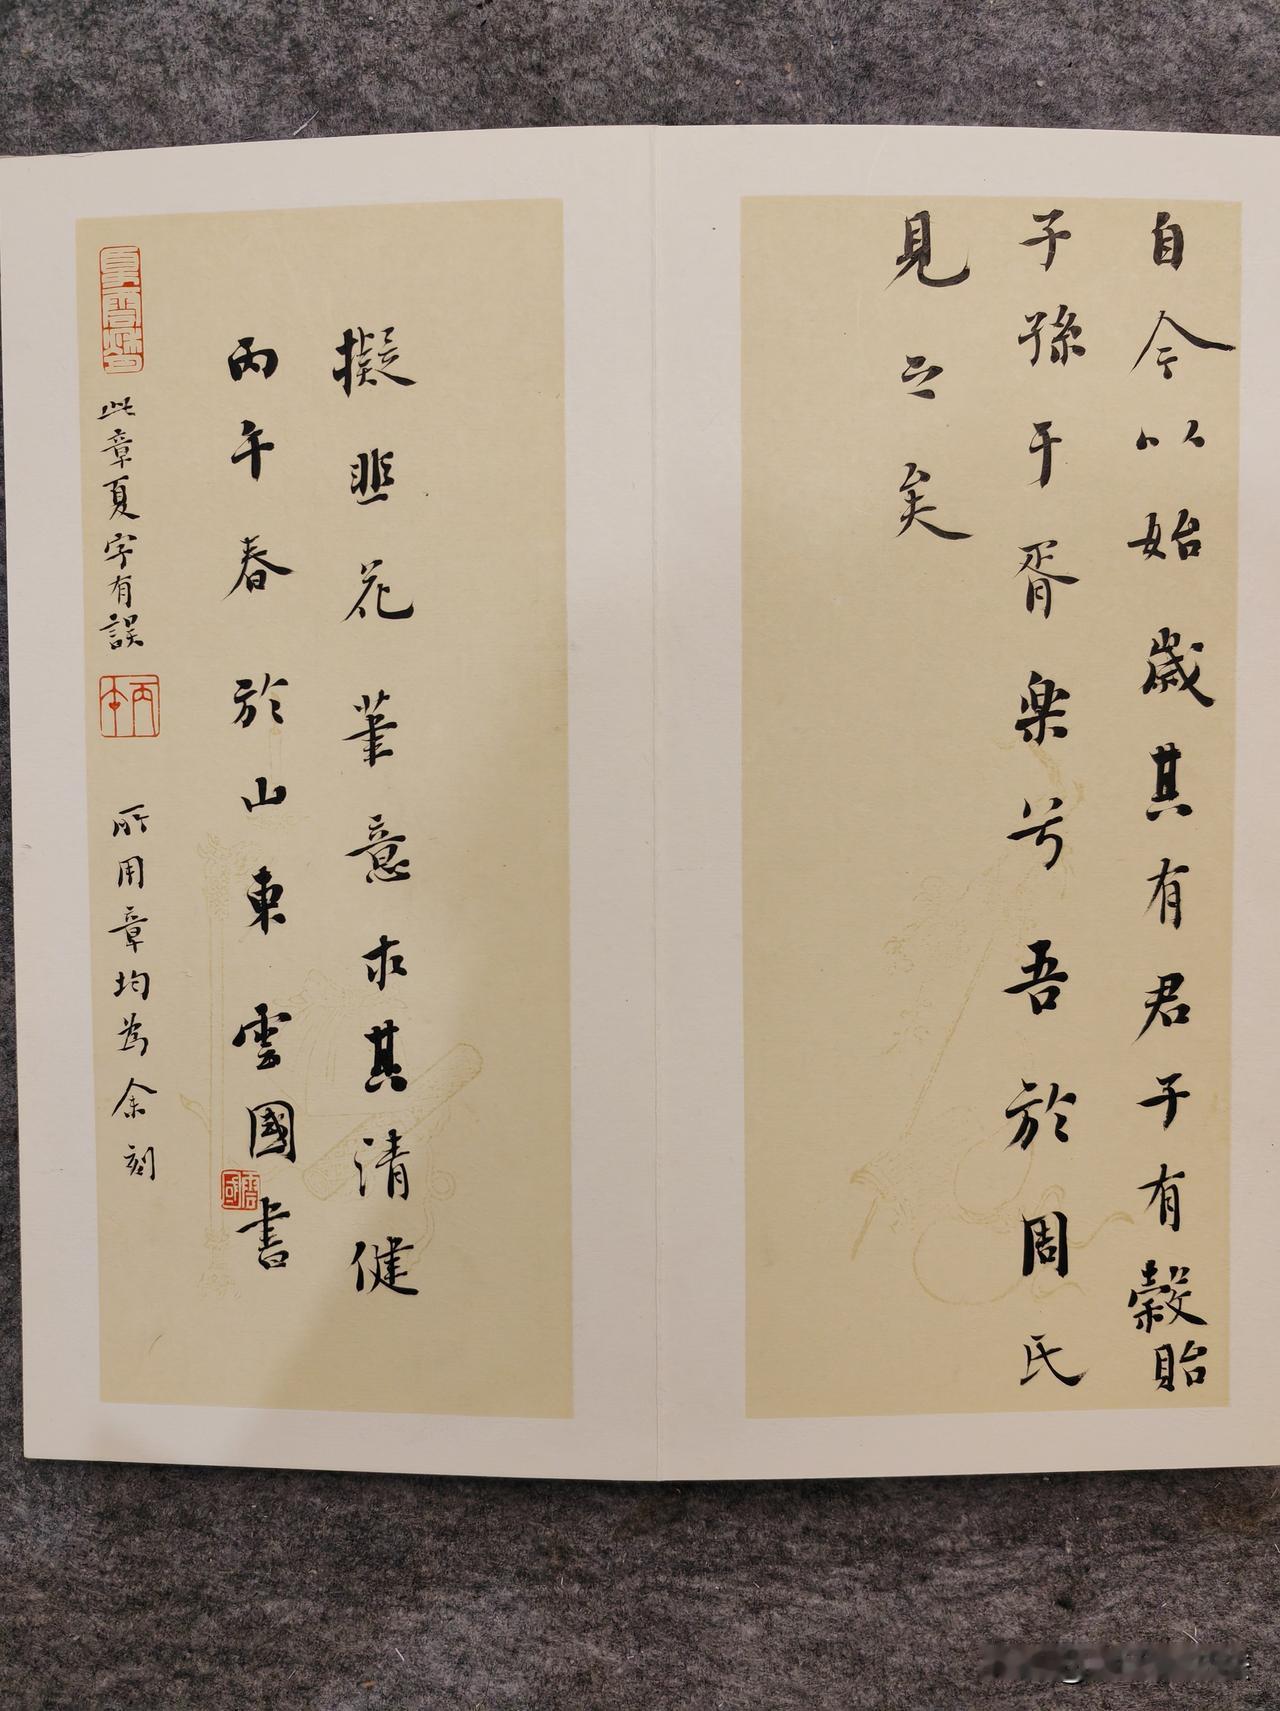 自今以始歲其有君子有穀貽
子孫于胥楽兮吾於周氏
見之矣
擬韭花筆意求其清健
丙午春於山東雲國書
雲國
此章夏字有誤
丙午
所用章均為余刻